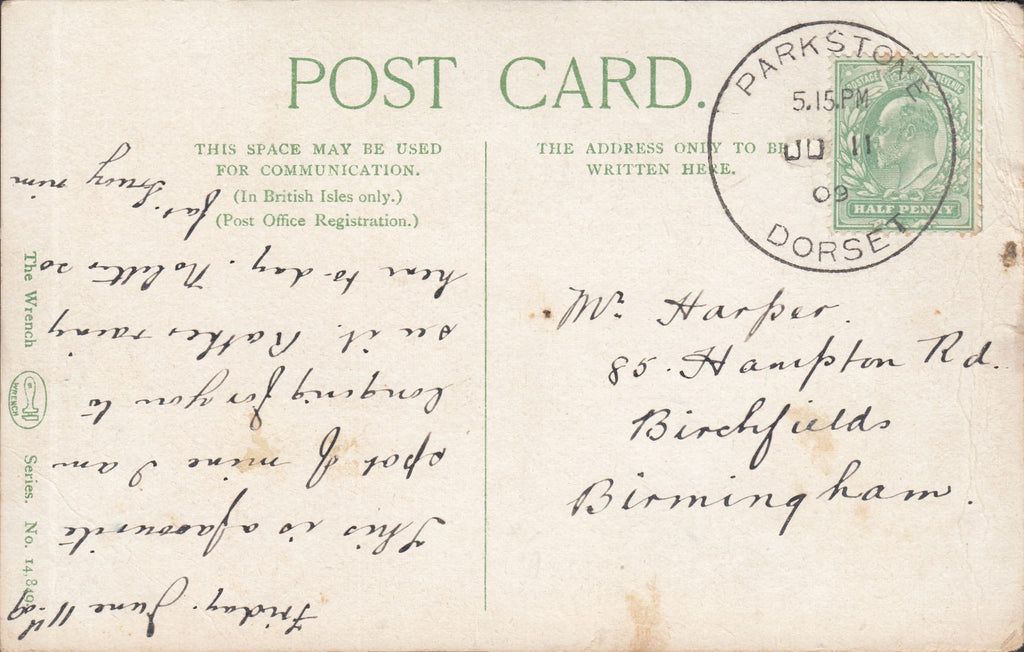 POST CARD.
THIS SPACE MAY BE USED
FOR COMMUNICATION.
(In British Isles only.)
(Post Office Registration.)
THE ADDRESS ONLY TO BE
WRITTEN HERE.
PARKSTONE
5.15.PM
JU 11
09
DORSET
POSTAGE REVENUE
HALF PENNY
Mr. Harper.
85. Hampton Rd.
Birchfields
Birmingham.
Friday. June 11th 09
This is a favourite
spot of mine I am
longing for you to
see it. Rather rainy
here to-day. No letter so
far.
The Wrench
WRENCH
Series. No. 14,849